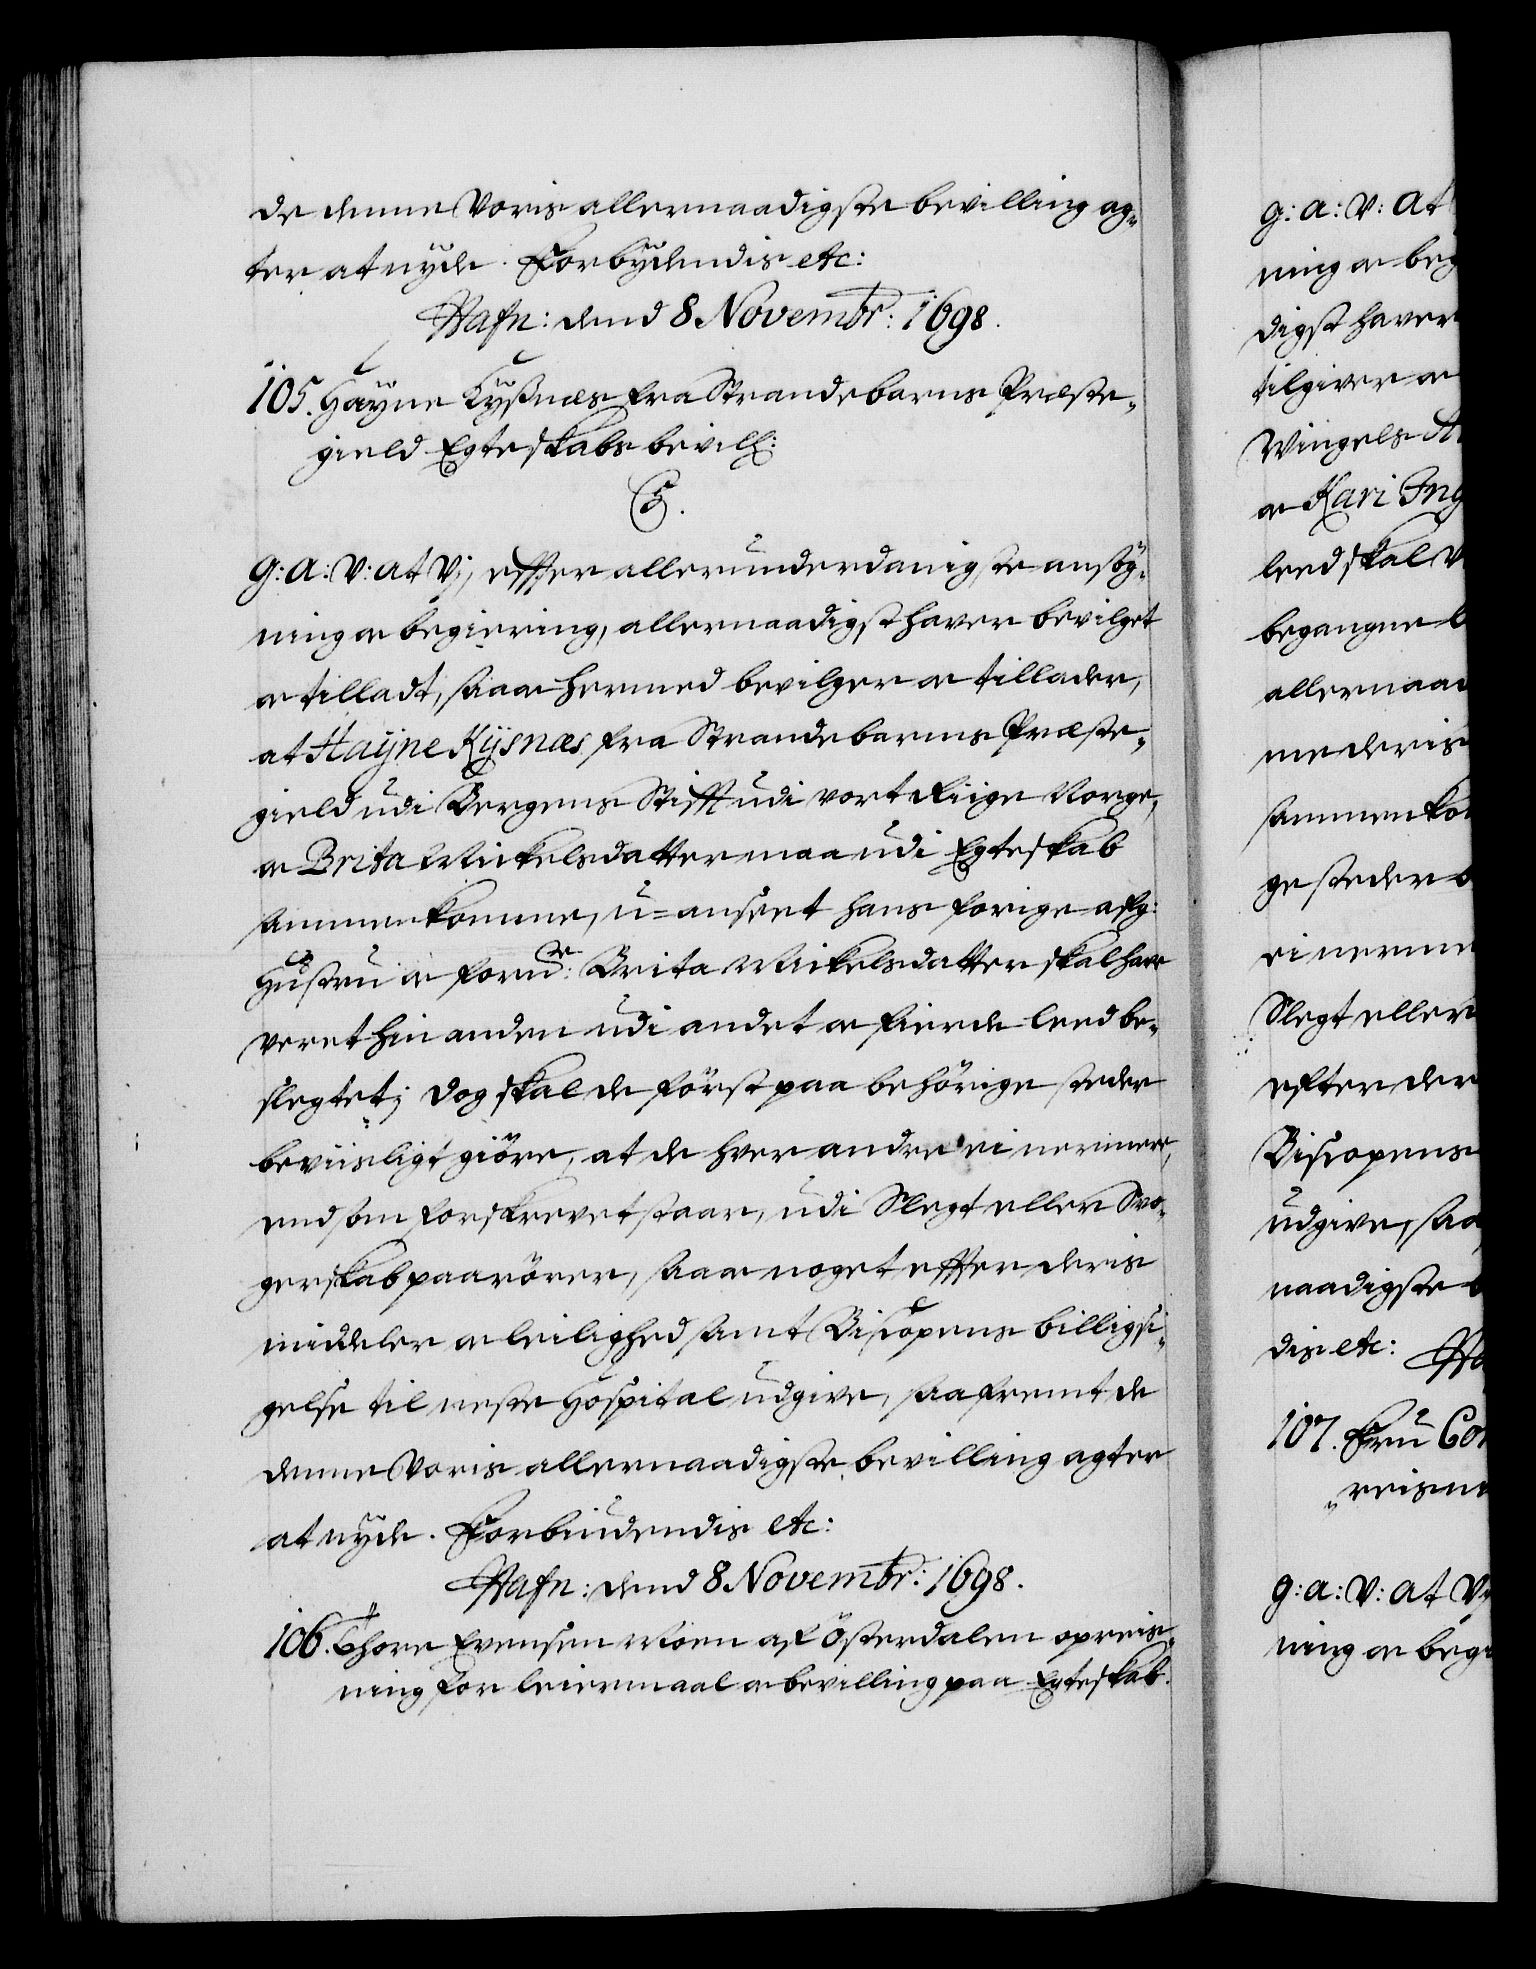 de denne Voris allernaadigste bevilling ag-
ter at nyde. Forbydendis etc:
Hafn: dend 8 Novembr: 1698.
105. Hayne Kyßnæs fra Strandebarns Præste-
gield Egteskabs bevill:
C5.
G: A: V: at Vj, effter allerunderdanigste ansög-
ning og begiering, allernaadigst haver bevilget
og tilladt, saa og hermed bevilger og tillader,
at Hayne Kysnæs fra Strandebarns Præste-
gield udi Bergens Stifft udi vort Riige Norge,
og Brita Mickelsdatter maa udi Egteskab
sammenkomme, u=anseet hans forige afg:
Hustru og fornde: Brita Mickelsdatter skal have
veret hin anden udi andet og fierde leed be-
slegtet; Dog skal de först paa behörige steder
beviisligt giöre, at de hver andre ei nermere,
end som forskrevet staar, udi Slegt eller Svo-
gerskab paarörer, saa og noget effter deris
middeler og leilighed samt Biscopens billigsi-
gelse til neste Hospital udgive, saafremt de
denne Voris allernaadigste bevilling agter
at nyde. Forbiudendis etc:
Hafn: dend 8 Novembr: 1698.
106. Thore Evensen Moen af Österdalen opreis-
ning for leiermaal og bevilling paa Egteskab.
g: a: V: at
ning og beg
digst haver
tilgiver og
Wingels
og Kari Ing
leed skal v
begangne
allernaa
me deris
sammenko
ge steder
ei nerme
Slegt eller
efter der
Biscopens
udgive, saa
naadigste
dis etc: Ha
107. Fru Co
reisn
g: a: V: at Vj
ning og begi